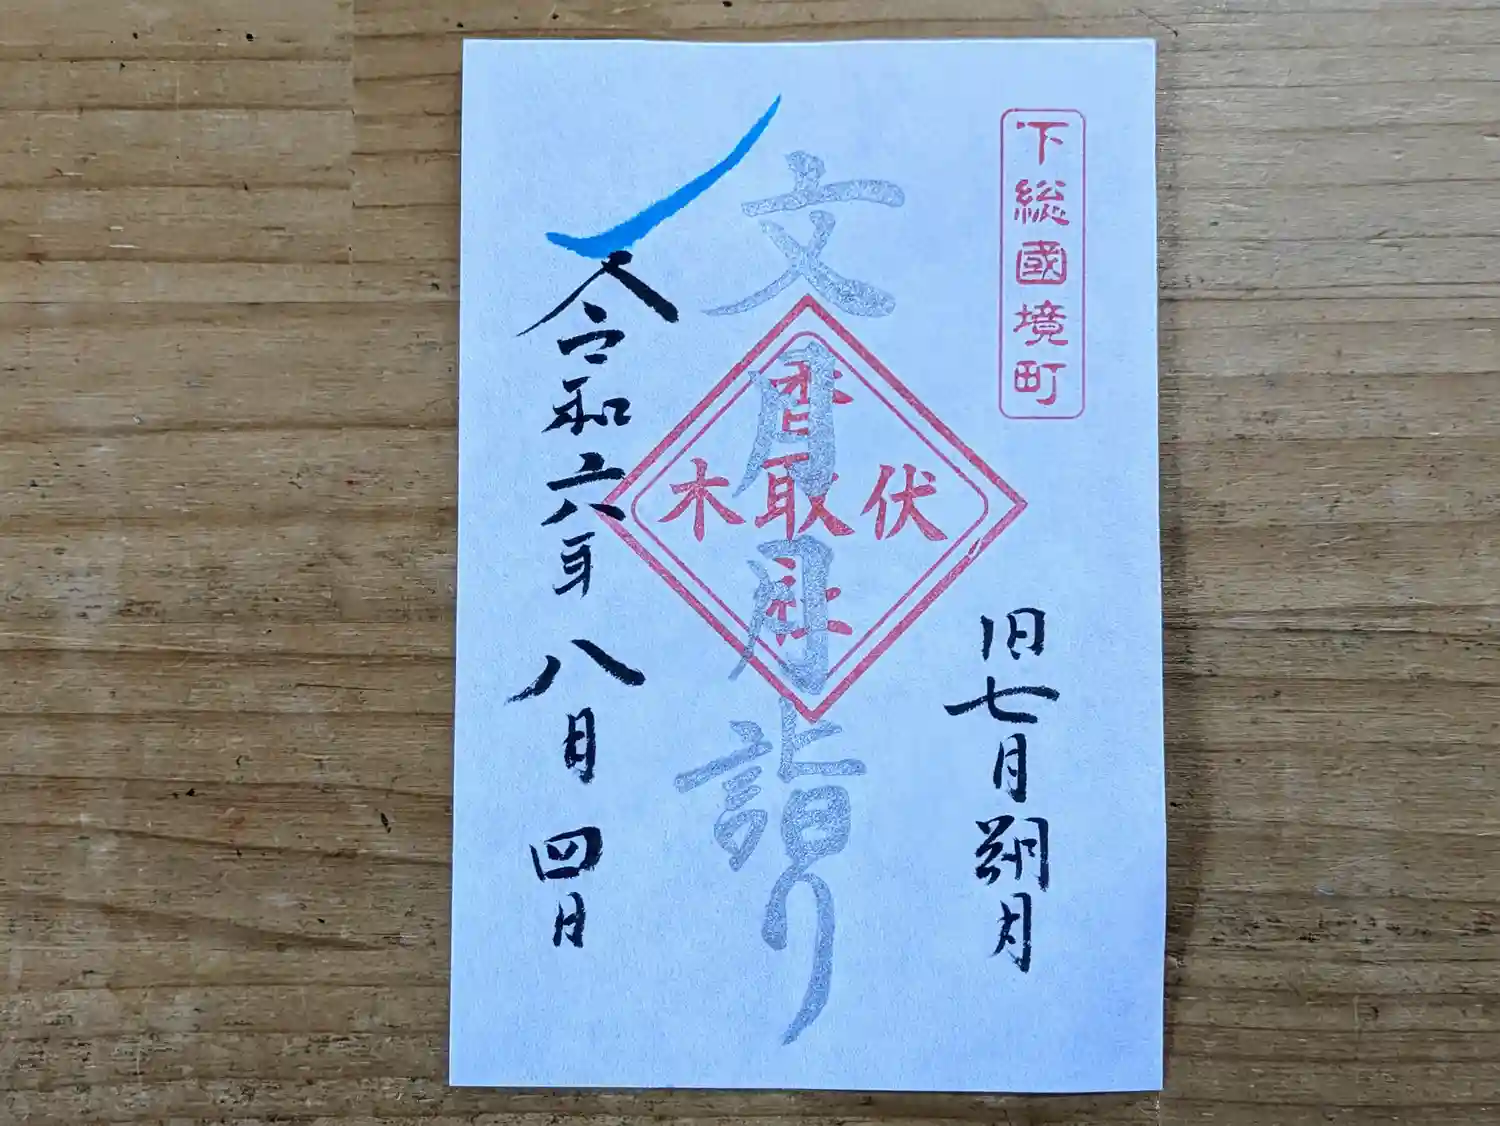 下総國境町
旧七月朔月
文月月詣り
香取社
伏木
令和六年八月四日